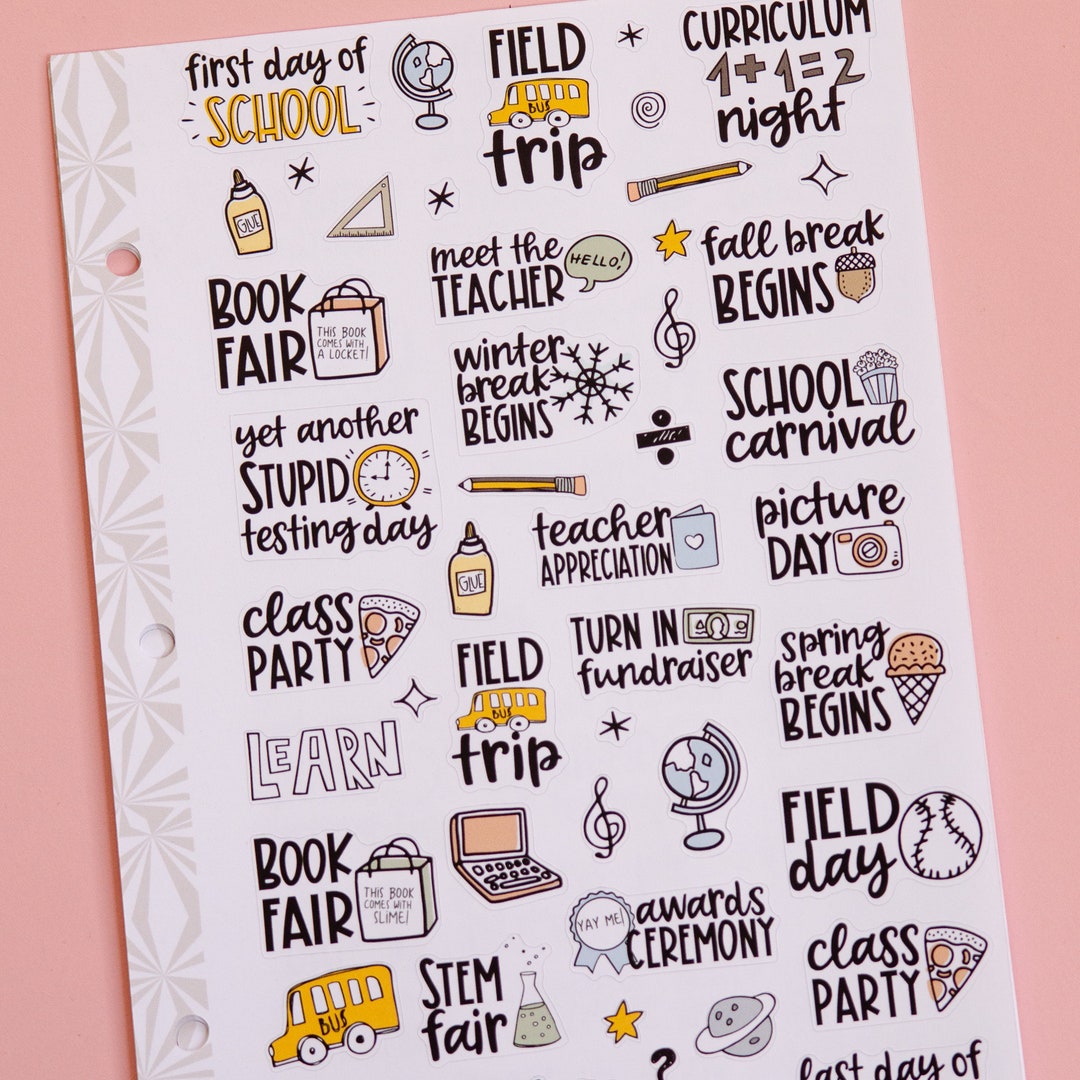 first day of
SCHOOL
FIELD
BUS
trip
CURRICULUM
1+1=2
night
GLUE
meet the
TEACHER
HELLO!
fall break
BEGINS
BOOK
FAIR
THIS BOOK
COMES WITH
A LOCKET!
winter
break
BEGINS
SCHOOL
carnival
yet another
STUPID
testing day
teacher
APPRECIATION
picture
DAY
GLUE
class
PARTY
FIELD
BUS
trip
TURN IN
fundraiser
spring
break
BEGINS
LEARN
BOOK
FAIR
THIS BOOK
COMES WITH
SLIME!
FIELD
day
YAY ME!
awards
CEREMONY
class
PARTY
BUS
STEM
fair
?
last day of